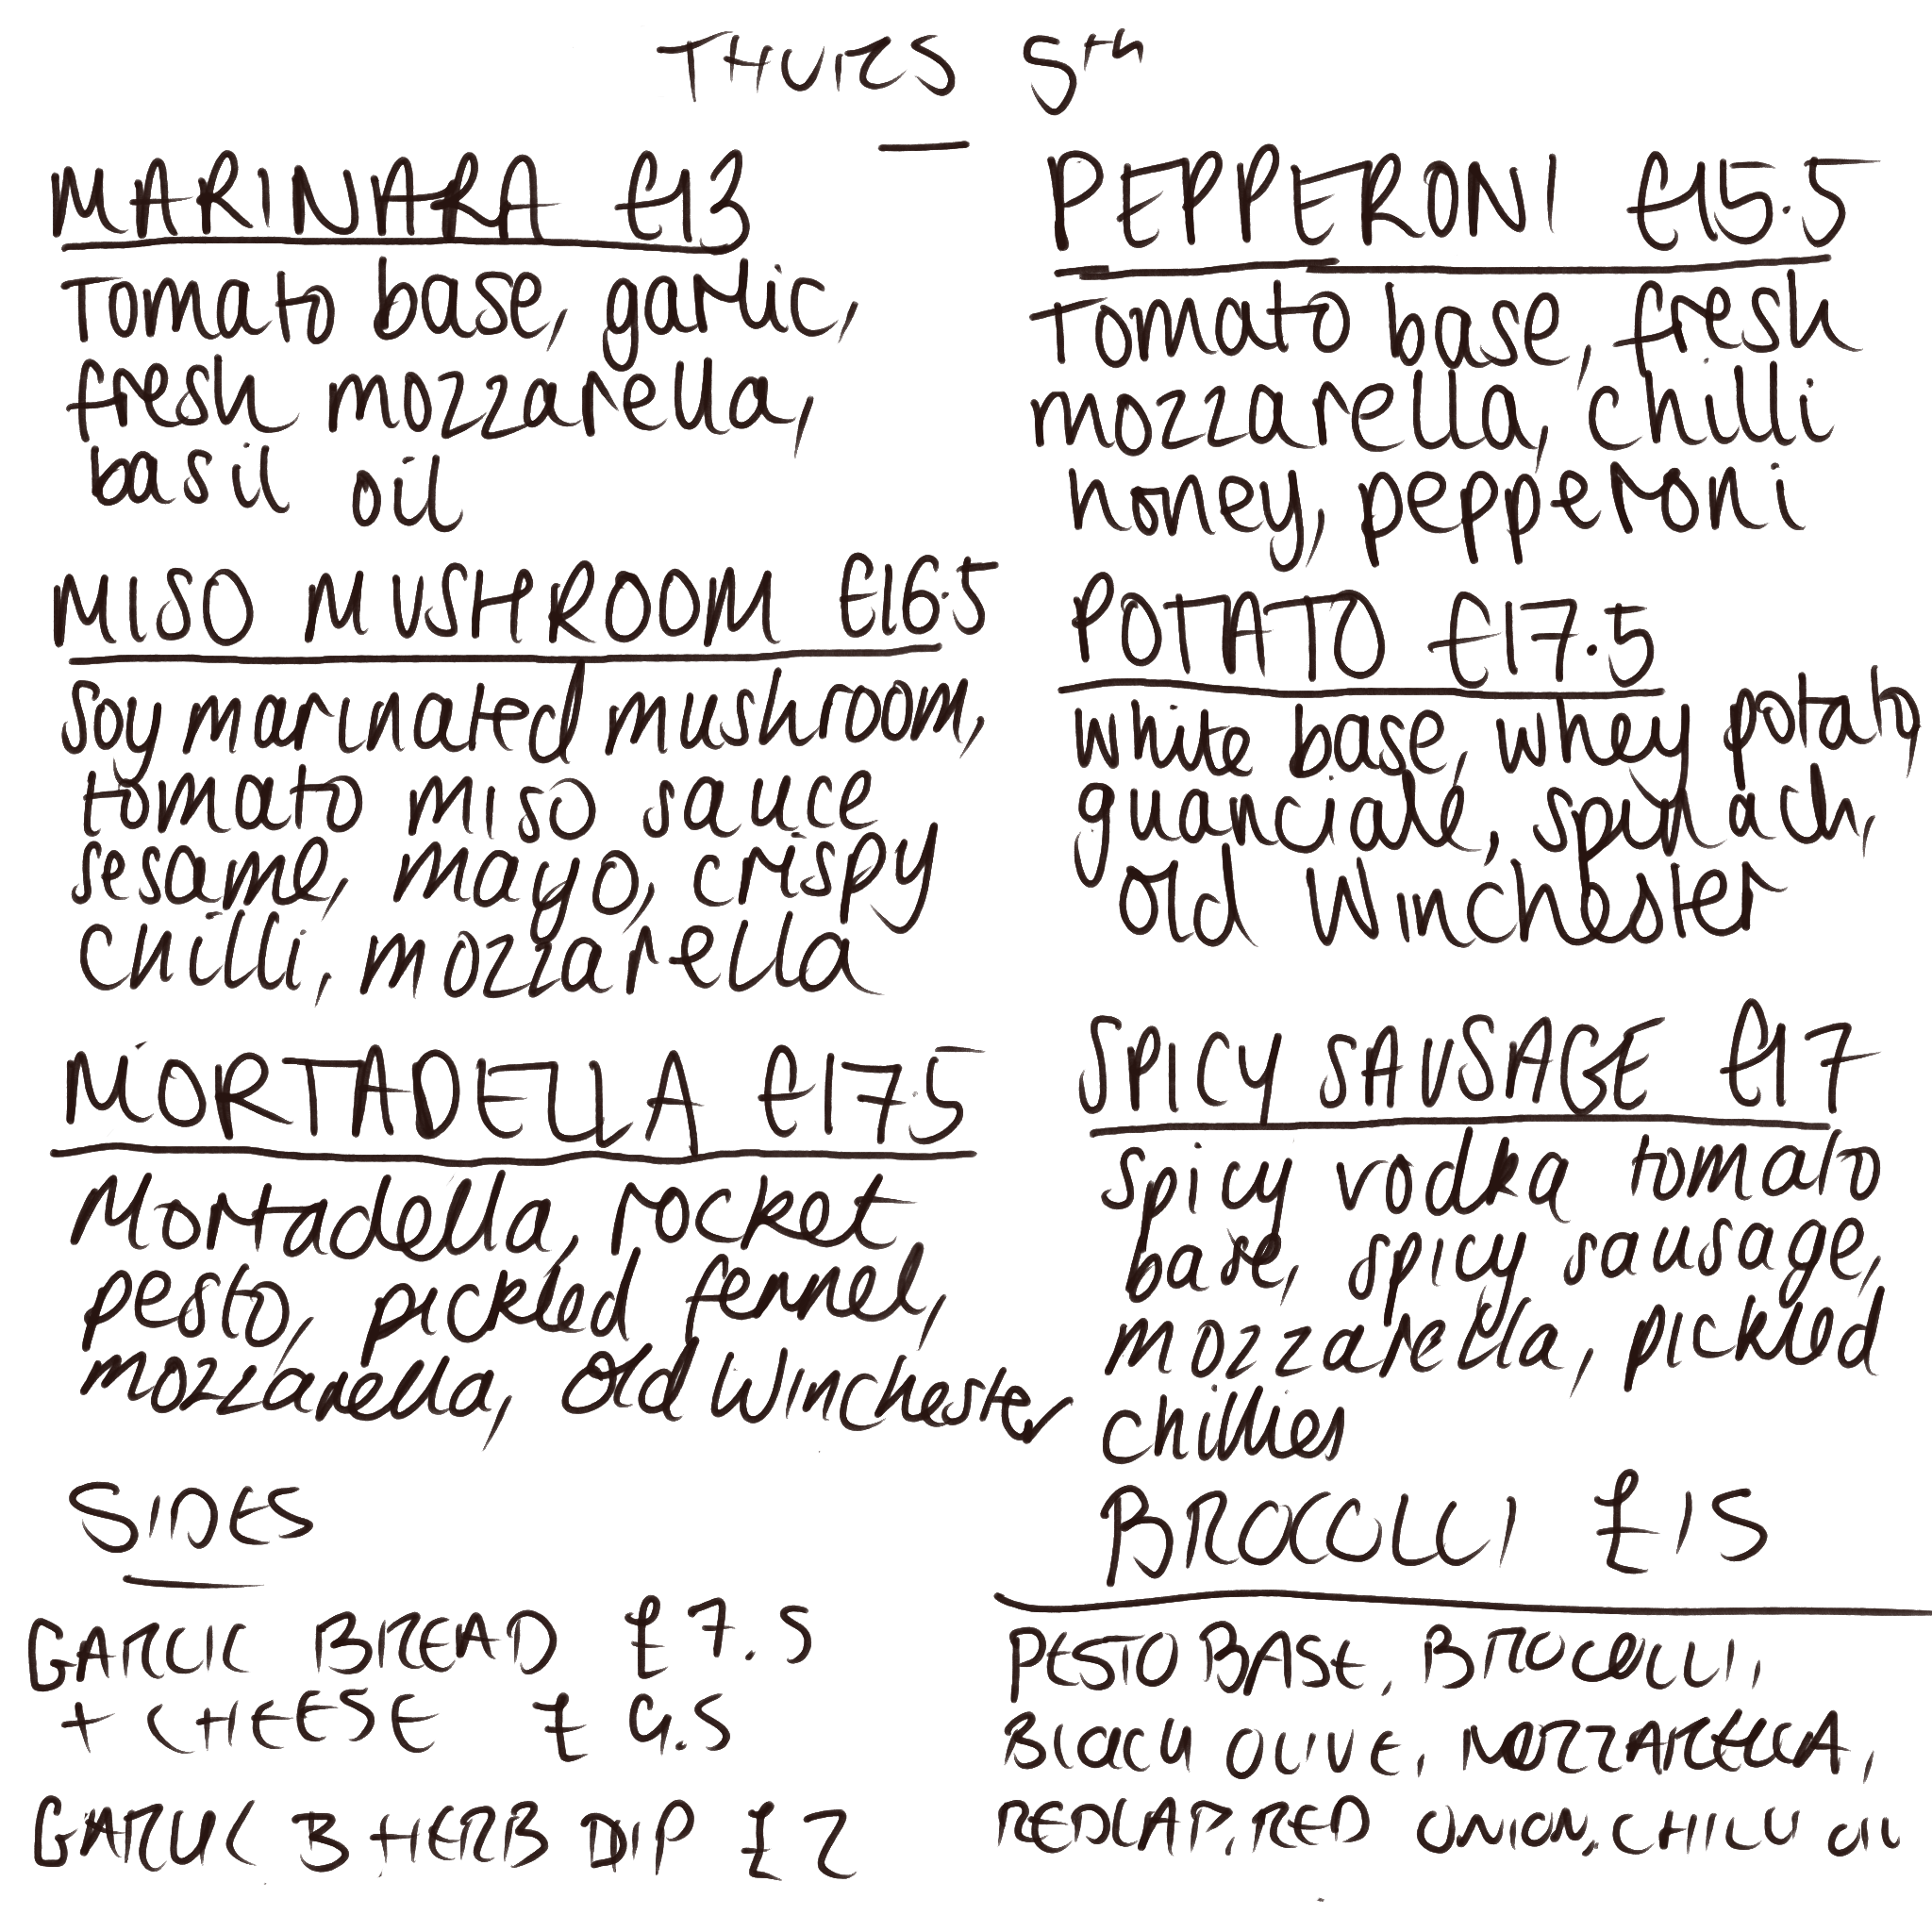 THURS 5th
MARINARA £13
Tomato base, garlic,
fresh mozzarella,
basil oil
MISO MUSHROOM £16.5
soy marinated mushroom,
tomato miso sauce
sesame, mayo, crispy
chilli, mozzarella
MORTADELLA £17.5
Mortadella, rocket
pesto, pickled fennel,
mozzarella, Old Winchester
SIDES
GARLIC BREAD £7.5
+ CHEESE £9.5
GARLIC & HERB DIP £2
PEPPERONI £15.5
Tomato base, fresh
mozzarella, chilli
honey, pepperoni
POTATO £17.5
White base, whey potato,
guanciale, spinach,
Old Winchester
SPICY SAUSAGE £17
Spicy vodka tomato
base, spicy sausage,
mozzarella, pickled
chillies
BROCOLLI £15
PESTO BASE, BROCOLLI,
BLACK OLIVE, MOZZARELLA,
REDCAP, RED ONION, CHILLI OIL